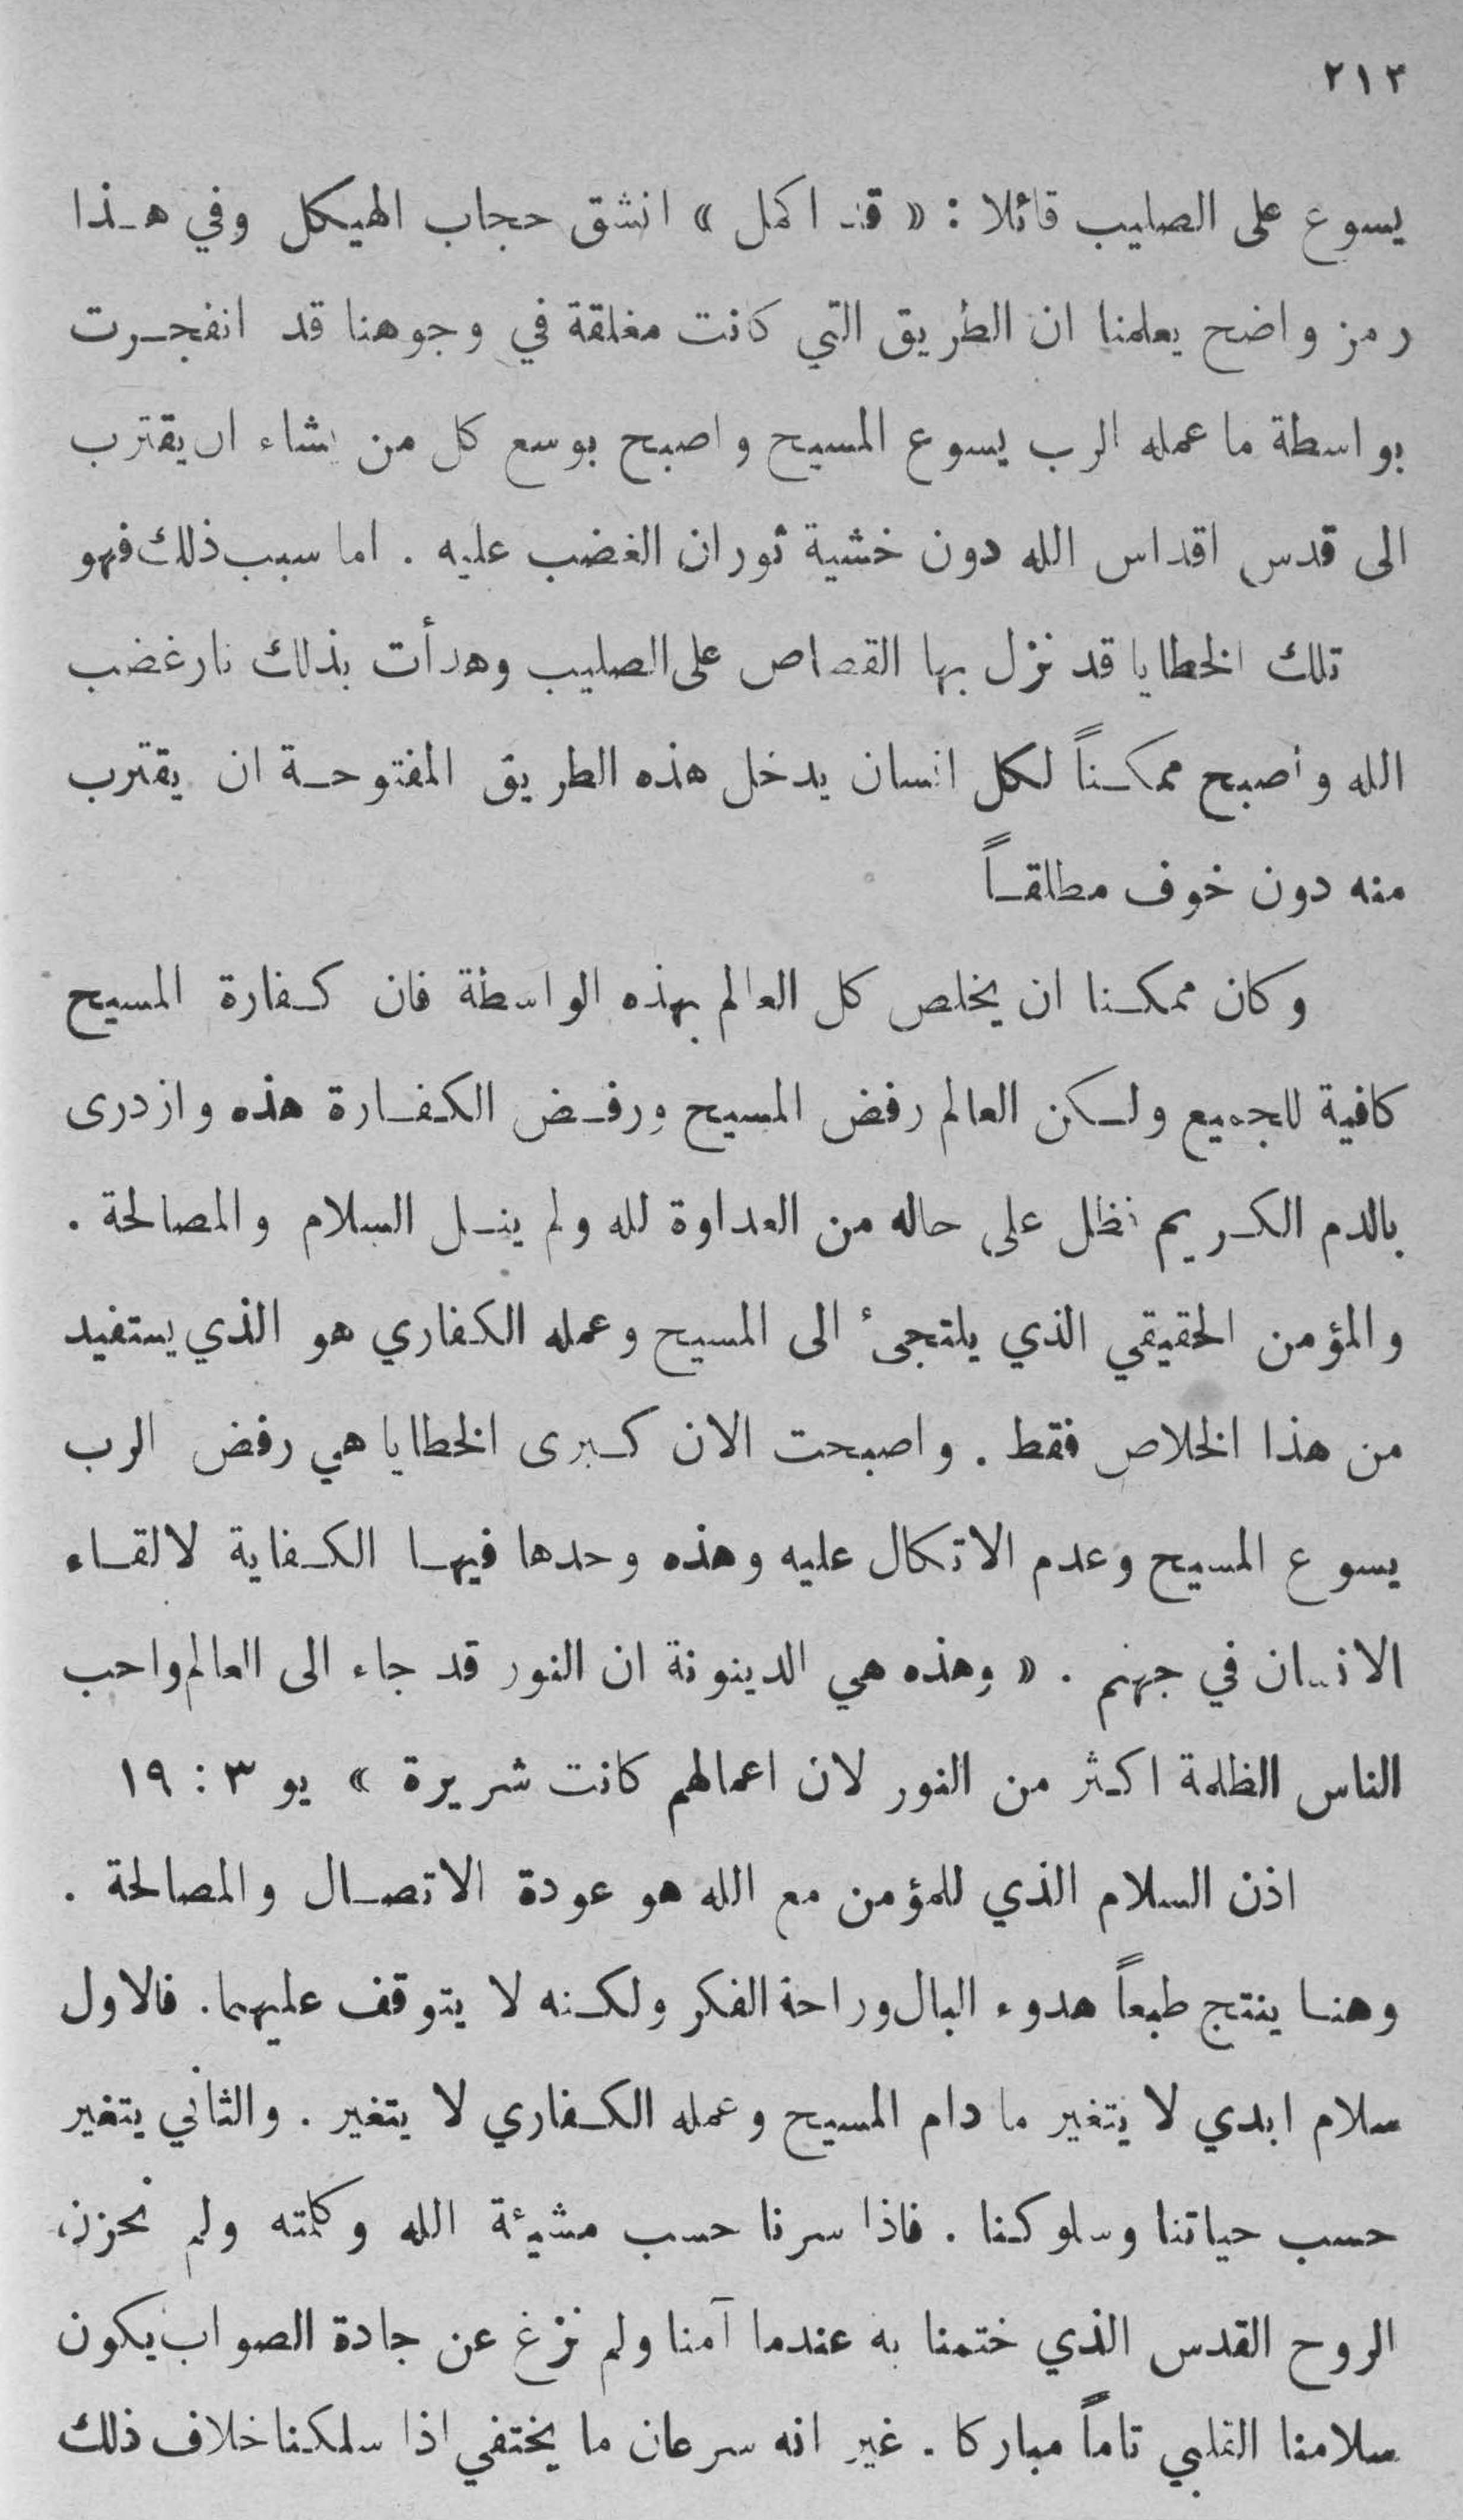 ٢١٢
يسوع على الصليب قائلا : « قد اكمل » انشق حجاب الهيكل وفي هـذا
رمز واضح يعلمنا ان الطريق التي كانت مغلقة في وجوهنا قد انفجـرت
بواسطة ما عمله الرب يسوع المسيح واصبح بوسع كل من يشاء ان يقترب
الى قدس اقداس الله دون خشية ثوران الغضب عليه . اما سبب ذلك فهو
تلك الخطايا قد نزل بها القصاص على الصليب وهدأت بذلك نار غضب
الله واصبح ممكـناً لكل انسان يدخل هذه الطريق المفتوحـة ان يقترب
منه دون خوف مطلقـاً
وكان ممكـنا ان يخلص كل العالم بهذه الواسطة فان كـفارة المسيح
كافية للجميع ولـكن العالم رفض المسيح ورفـض الكـفـارة هذه وازدرى
بالدم الكـريم فظل على حاله من العداوة لله ولم ينـل السلام والمصالحة .
والمؤمن الحقيقي الذي يلتجئ الى المسيح وعمله الكفاري هو الذي يستفيد
من هذا الخلاص فقط . واصبحت الان كـبرى الخطايا هي رفض الرب
يسوع المسيح وعدم الاتكال عليه وهذه وحدها فيهـا الكـفاية لالقـاء
الانسان في جهنم . « وهذه هي الدينونة ان النور قد جاء الى العالم واحب
الناس الظلمة اكـثر من النور لان اعمالهم كانت شريرة » يو ٣ : ١٩
اذن السلام الذي للمؤمن مع الله هو عودة الاتصـال والمصالحة .
وهنـا ينتج طبعاً هدوء البال وراحة الفكر ولكـنه لا يتوقف عليهما. فالاول
سلام ابدي لا يتغير ما دام المسيح وعمله الكـفاري لا يتغير . والثاني يتغير
حسب حياتنا وسلوكـنا . فاذا سرنا حسب مشيئة الله وكلمته ولم نحزن
الروح القدس الذي ختمنا به عندما آمنا ولم نزغ عن جادة الصواب يكون
سلامنا القلبي تاماً مباركا . غير انه سرعان ما يختفي اذا سلمكنا خلاف ذلك